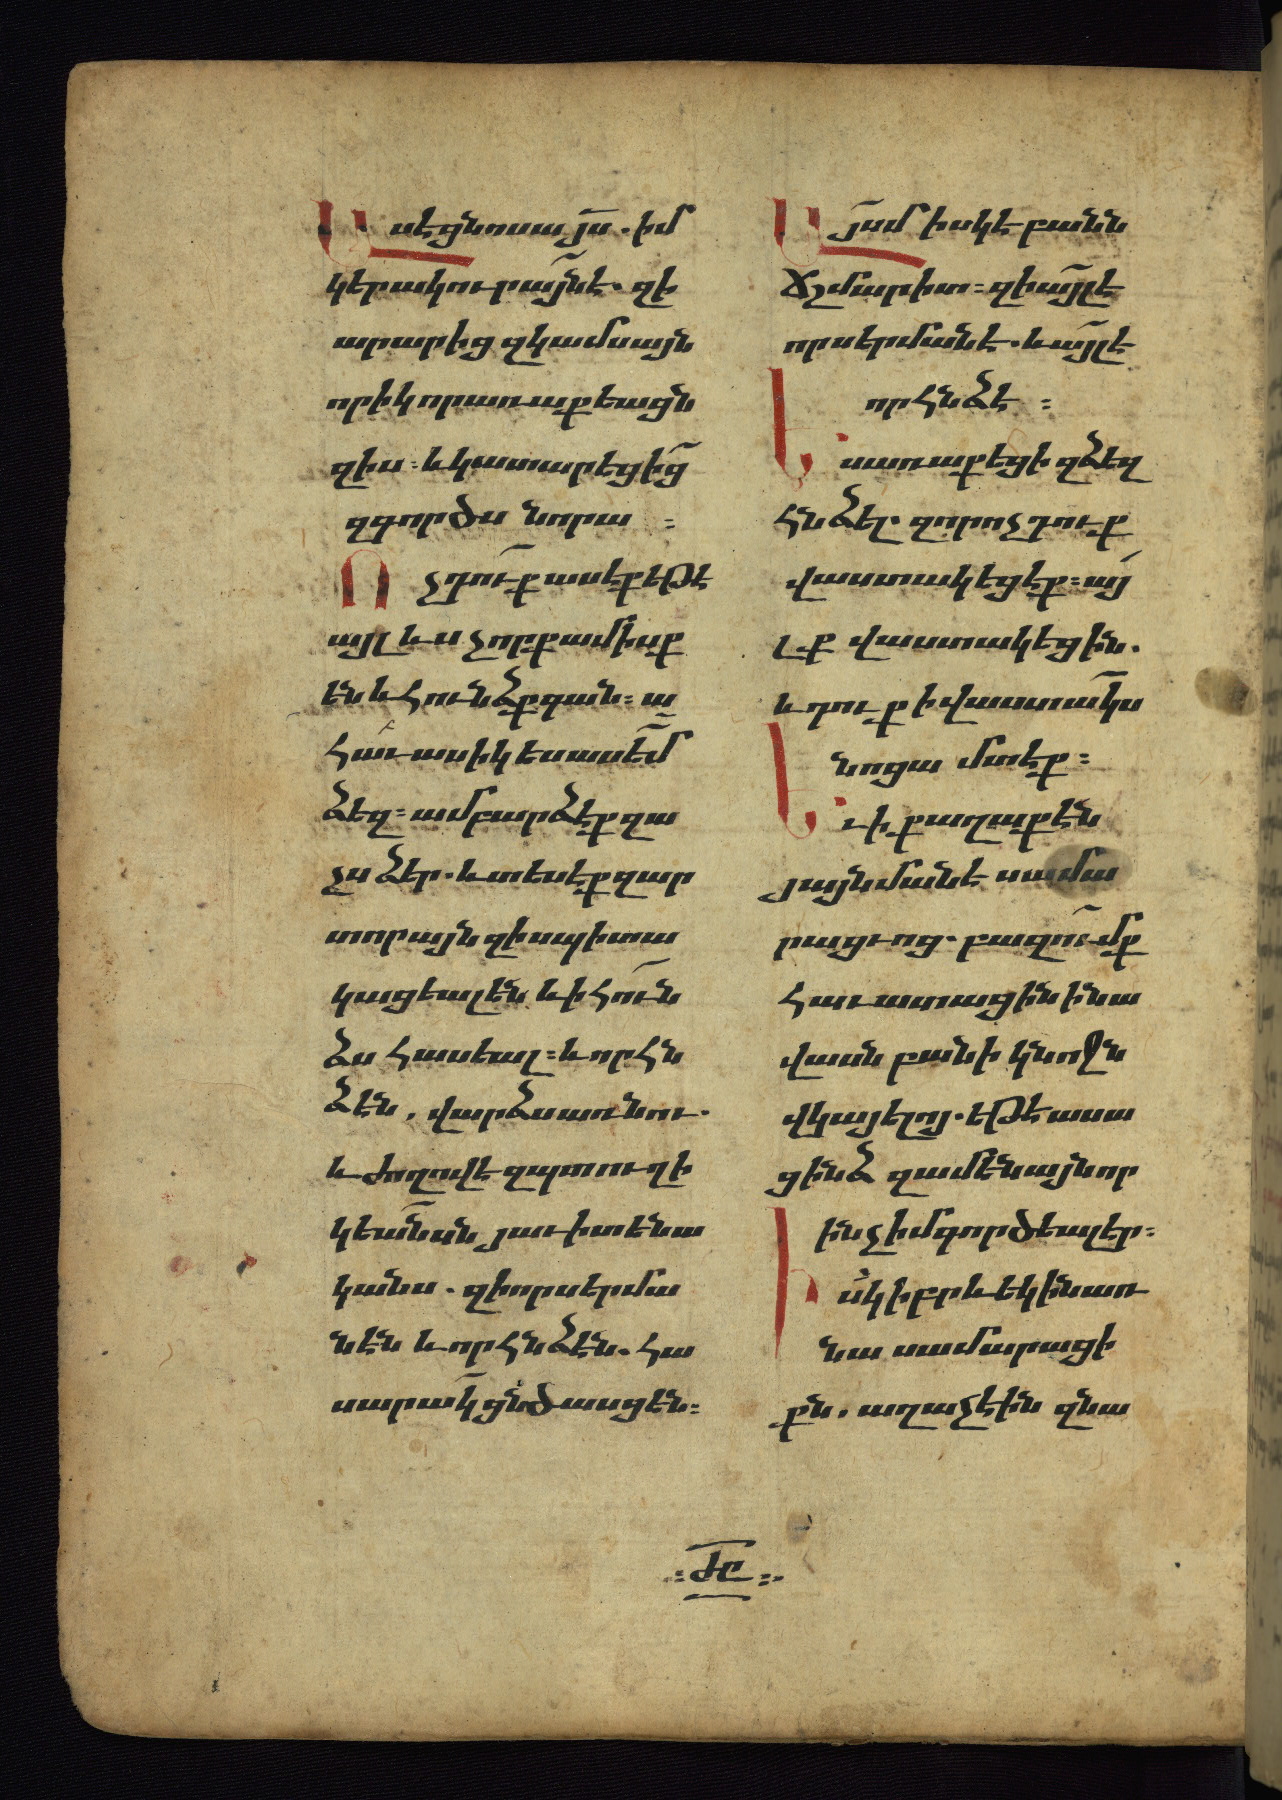 Ասէ ցնոսա յս. իմ
կերակուր այն է. զի
արարից զկամս այն
որիկ որ առաքեացն
զիս։ և կատարեցից
զգործս նորա ։
Ոչ դուք ասէք եթէ
այլ ևս չորք ամիսք
են և հունձք գան։ ա
հաւասիկ ես ասեմ
ձեզ։ ամբարձէք զա
չս ձեր. և տեսէք զար
տորայն զի սպիտա
կացեալ են և ի հուն
ձս հասեալ։ և որ հն
ձէն, վարձս առնու.
և ժողովէ զպտուղ ի
կեանսն յաւիտենա
կանս. զի որ սերմա
նէն և որ հնձէն. հա
սարակ ցնծասցեն։
Այսմ իսկ է բանն
ճշմարիտ։ զի այլ է
որ սերմանէ. և այլ է
որ հնձէ ։
Ես առաքեցի զձեզ
հնձել. զոր ոչ դուք
վաստակեցէք։ այ
լք վաստակեցին.
և դուք ի վաստակս
նոցա մտէք։
Եւ ի քաղաքէն
յայնմանէ սամա
րացւոց. բազումք
հաւատացին ի նա
վասն բանի կնոջն
վկայելոյ. եթէ ասա
ց ինձ զամենայն որ
ինչ իմ գործեալ էր։
Իսկ իբրև եկին առ
նա սամարացի
քն. աղաչէին զնա
ժը